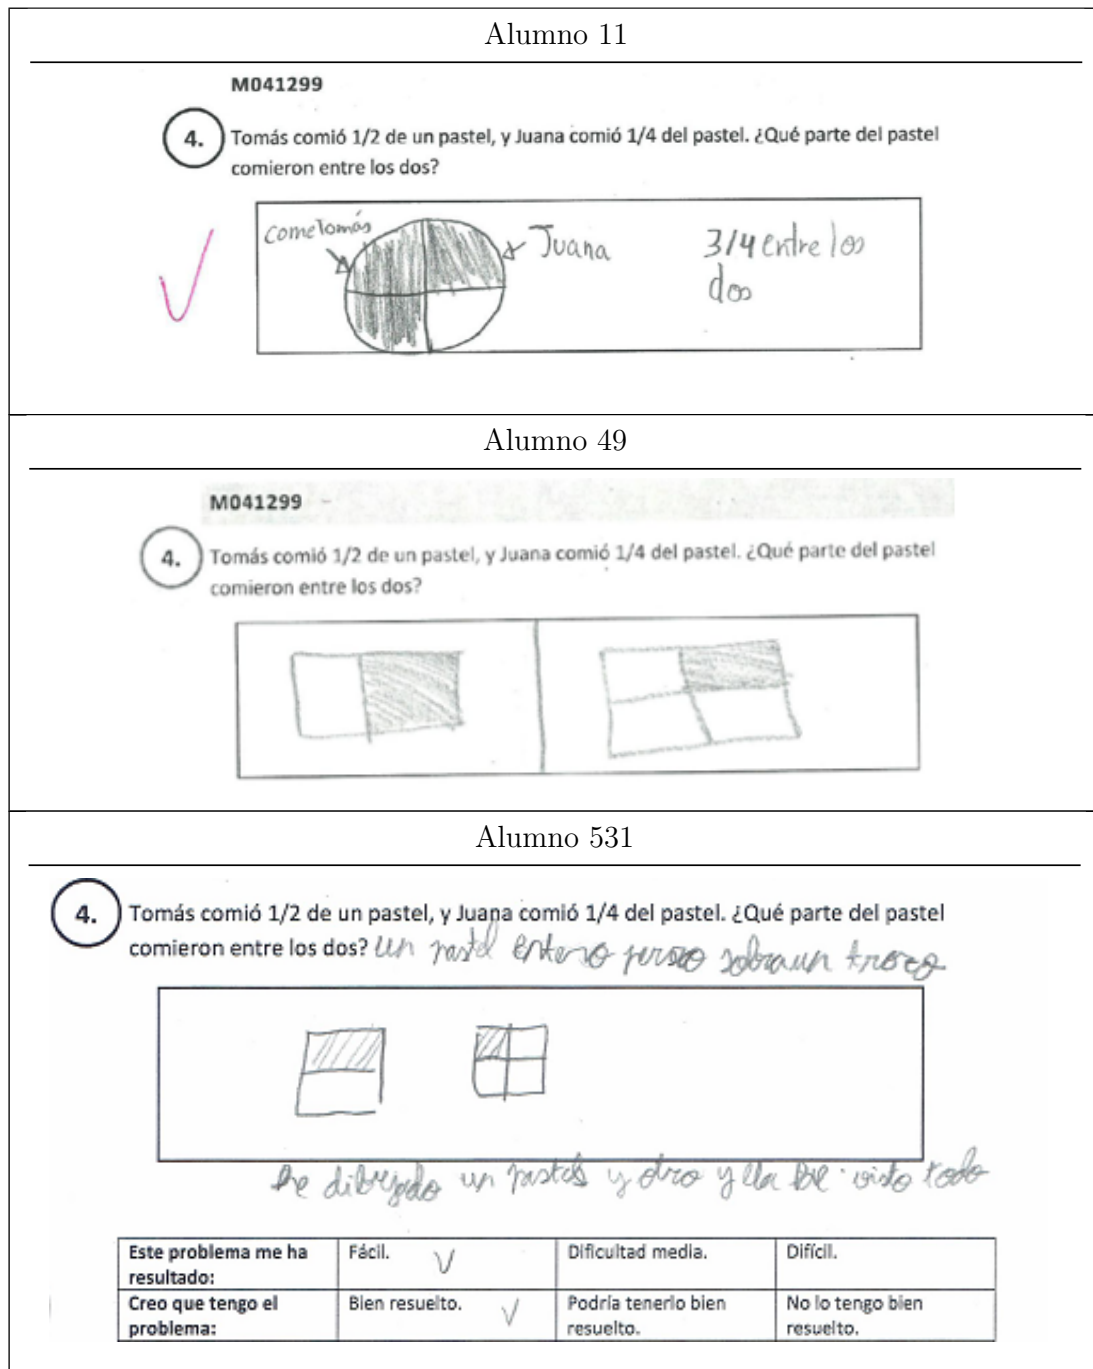 Alumno 11
M041299
4. Tomás comió 1/2 de un pastel, y Juana comió 1/4 del pastel. ¿Qué parte del pastel
comieron entre los dos?
come Tomás
Juana
3/4 entre los
dos
Alumno 49
M041299
4. Tomás comió 1/2 de un pastel, y Juana comió 1/4 del pastel. ¿Qué parte del pastel
comieron entre los dos?
Alumno 531
4. Tomás comió 1/2 de un pastel, y Juana comió 1/4 del pastel. ¿Qué parte del pastel
comieron entre los dos? un pastel entero sobra un trozo
He dibujado un pastel y otro y lla he visto todo
Este problema me ha
resultado:
Fácil.
Dificultad media.
Difícil.
Creo que tengo el
problema:
Bien resuelto.
Podría tenerlo bien
resuelto.
No lo tengo bien
resuelto.